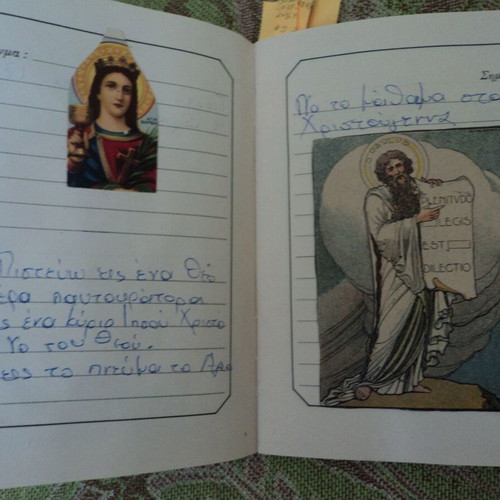 μα :
Πιστεύω εις ένα Θεό
έρα παντοκράτορα
ς ένα κύριο Ιησού Χριστο
Υο του Θεού.
εις το πνεύμα το Αγιο
Σημ
Για το μάθημα στα
Χριστούγεννα
S PAULUS
PLENITUDO
LEGIS
EST
DILECTIO